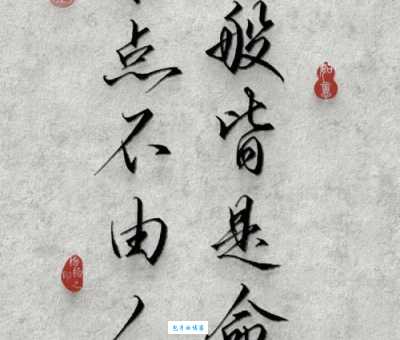 般皆是命
点不由人
如意